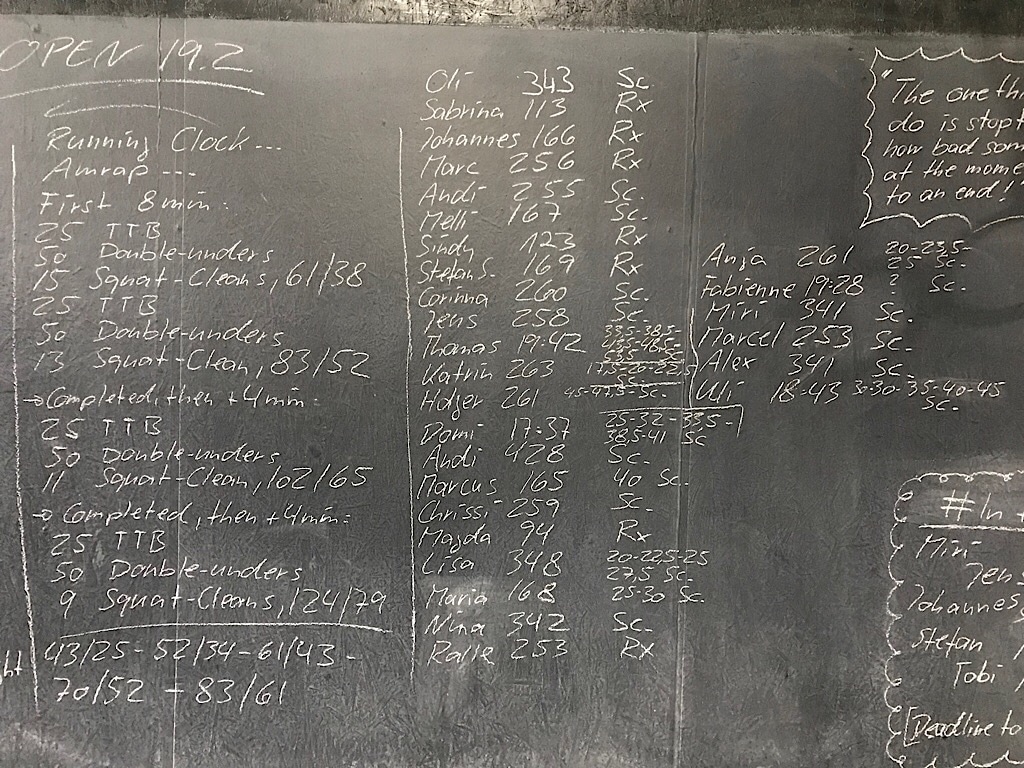 OPEN 19.2
Running Clock...
Amrap ---
First 8min:
25 TTB
50 Double-unders
15 Squat-Cleans, 61/38
25 TTB
50 Double-unders
13 Squat-Clean, 83/52
→Completed, then +4min:
25 TTB
50 Double-unders
11 Squat-Clean, 102/65
→ Completed, then +4min:
25 TTB
50 Double-unders
9 Squat-Cleans, 124/79
43/25 - 52/34 - 61/43 -
70/52 - 83/61
Oli 343 Sc.
Sabrina 113 Rx
Johannes 166 Rx
Marc 256 Rx
Andi 255 Sc.
Melli 167 Sc.
Sindy 123 Rx
Stefan S. 169 Rx
Corinna 260 Sc.
Jens 258 Sc.
Thomas 19:42 33,5-38,5-
Katrin 263 17,5-20-22,5
Sc.
Holger 261 45-47,5-Sc.
Domi 17:37 25-32-33,5-
38,5-41 Sc
Andi 428 Sc.
Marcus 165 40 Sc.
Chrissi 259 Sc.
Magda 94 Rx
Lisa 348 20-22,5-25
27,5 Sc.
Maria 168 25-30 Sc.
Nina 342 Sc.
Ralle 253 Rx
Anja 261 20-23,5-
25 Sc.
Fabienne 19:28 ? Sc.
Miri 341 Sc.
Marcel 253 Sc.
Alex 341 Sc.
Uli 18:43 30-35-40-45
Sc.
"The one thi
do is stop t
how bad som
at the mome
to an end!"
#In
Miri
Jens
Johannes
Stefan
Tobi
[Deadline to